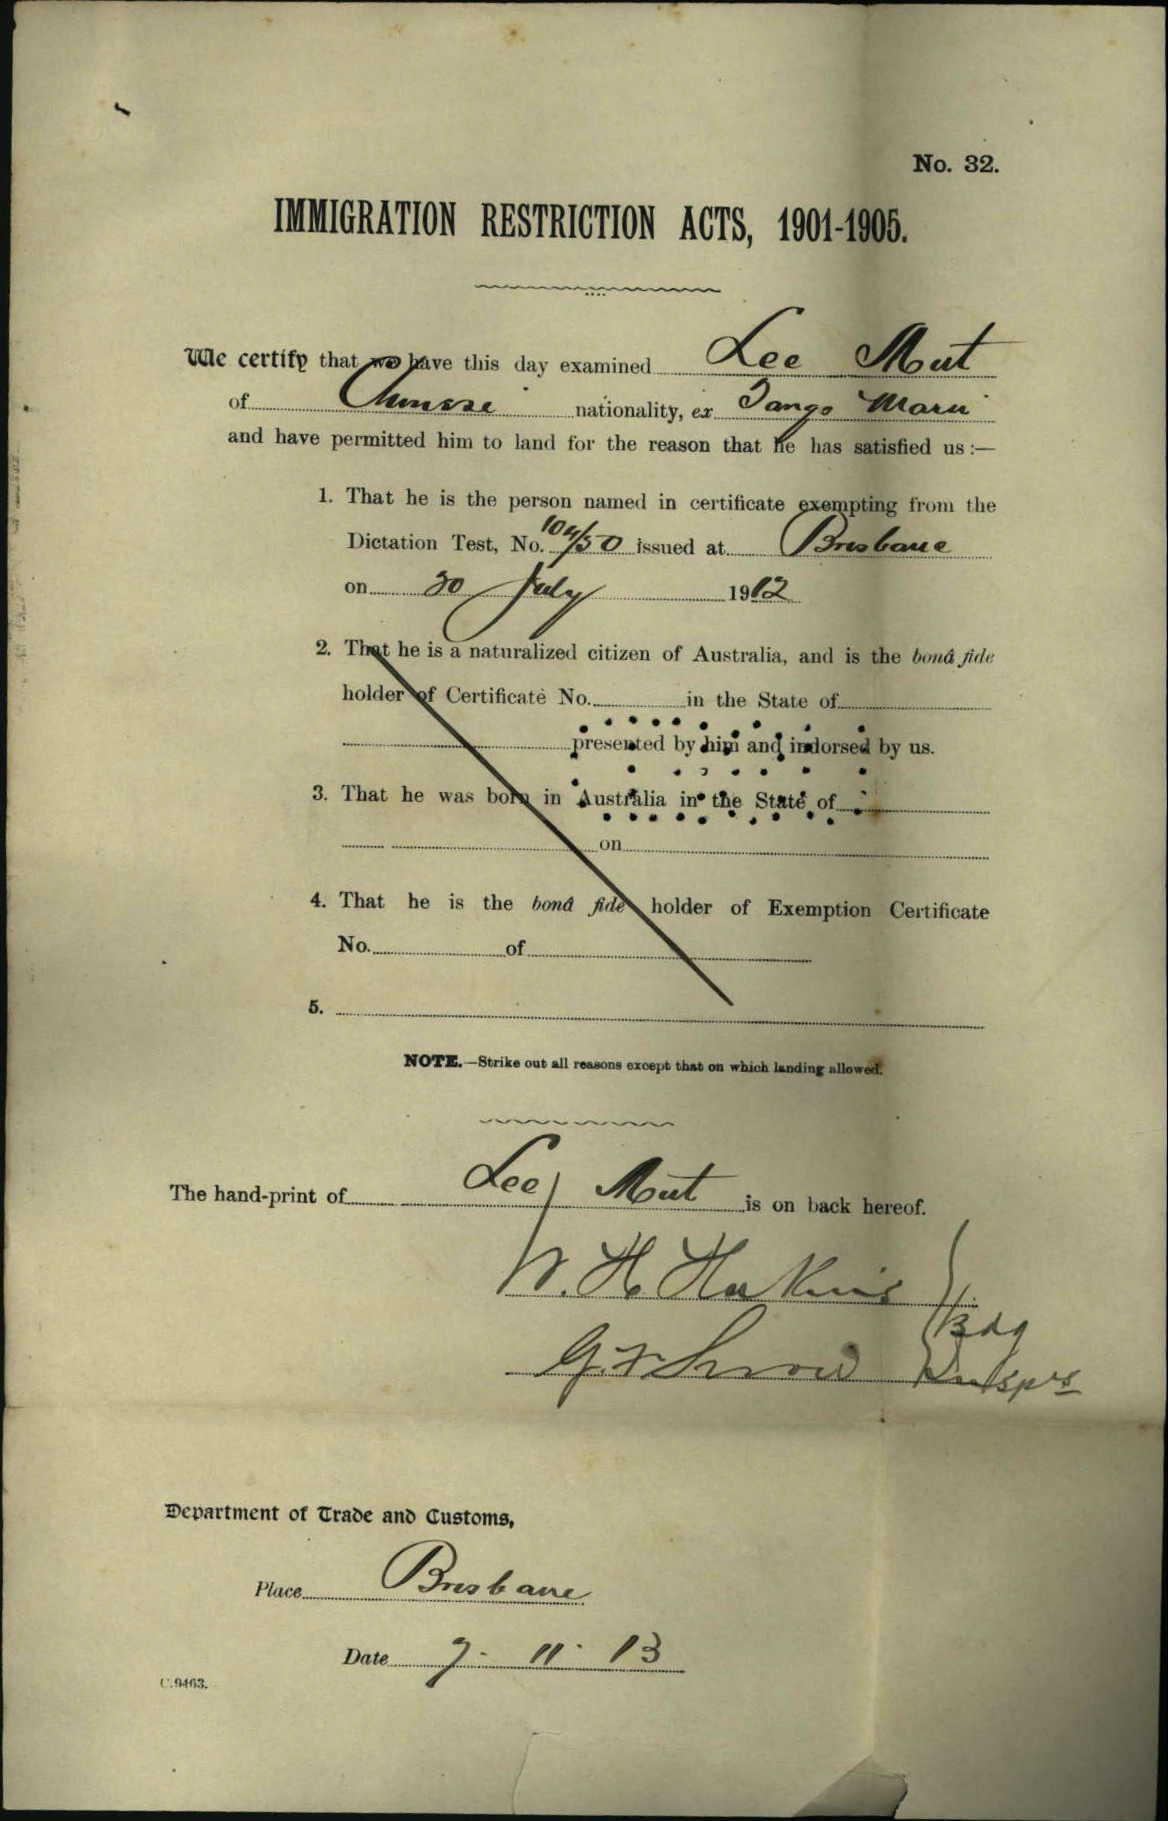 No. 32.
IMMIGRATION RESTRICTION ACTS, 1901-1905.
We certify that we have this day examined Lee Mut
of Chinese nationality, ex Tango Maru
and have permitted him to land for the reason that he has satisfied us:—
1. That he is the person named in certificate exempting from the
Dictation Test, No. 104/50 issued at Brisbane
on 30 July 1912
2. That he is a naturalized citizen of Australia, and is the bonâ fide
holder of Certificate No. in the State of
presented by him and indorsed by us.
3. That he was born in Australia in the State of
on
4. That he is the bonâ fide holder of Exemption Certificate
No. of
5.
NOTE.—Strike out all reasons except that on which landing allowed.
The hand-print of Lee Mut is on back hereof.
W. H.
G. F.
Bdg
Insprs
Department of Trade and Customs,
Place Brisbane
Date 7. 11. 13
C.9463.